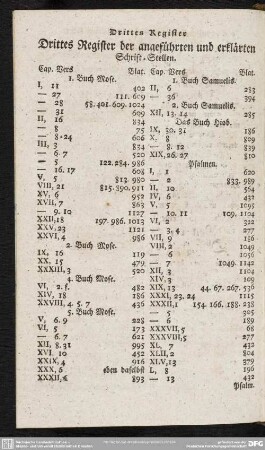 Drittes Register
Drittes Register der angeführten und erklärten
Schrift-Stellen.
Cap. Vers Blat.
1. Buch Mose.
I, 11 402
— 27 111. 609
— 28 58. 401. 609. 1024
— 31 609
II, 16 834
— 8
— 8-24 606
III, 3 809
— 6. 7 520
— 5 122. 284. 986
— 16. 17
V, 5 813. 980
VIII, 21 815. 390. 911
XV, 6 952
XVII, 7 863
— 9. 10 1127
XXII, 18 197. 986. 1013
XXV, 23 1121
XXVI, 4 986
2. Buch Mose.
IX, 16 119
XX, 15 479
XXXIII, 3 520
4. Buch Mose.
VI, 2. f. 482
XIV, 18 186
XXVIII, 4. 5. 7 436
5. Buch Mose.
V, 6. 9 228
VI, 5 173
— 6. 7 621
XII, 8. 31 995
XVI, 10 452
XXIX, 4 916
XXX, 6 eben daselbst
XXXII, 893
Cap. Vers Blat.
1. Buch Samuelis.
II, 6 283
— 36 394
2. Buch Samuelis.
XII, 13. 14 285
Das Buch Hiob.
IX, 30. 31 186
X, 8 809
— 8. 12 839
XIX, 26. 27 810
Psalmen.
I, 1 620
— 2 833. 989
II, 10 564
IV, 6 432
V, 5 1095
— 10. 11 109. 1104
VI, 2 1102
— 3. 4 277
VII, 9 186
VIII, 2 1049
— 6 1056
— 7 1049. 1142
XII, 3 1104
XIV, 3 109
XIX, 13 44. 67. 267. 530
XXXI, 23. 24 1115
XXXII, 1 154. 166. 188. 238
— 5 305
— 6 196
XXXVII, 5 68
XXXVIII, 5 277
XL, 7 432
XLII, 2 804
XLV, 13 379
L, 8 196
— 13 432
Psalm.